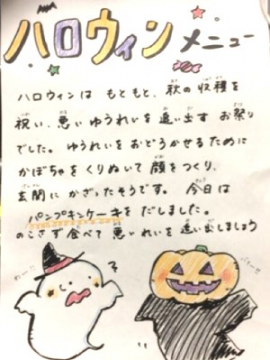 ハロウィンメニュー
ハロウィンは もともと、秋の収穫を
祝い、悪いゆうれいを追い出すお祭り
でした。ゆうれいをおどろかすために
かぼちゃをくりぬいて顔をつくり、
玄関にかざったそうです。今日は
パンプキンケーキをだしました。
のこさず食べて悪いれいを追い出しましょう